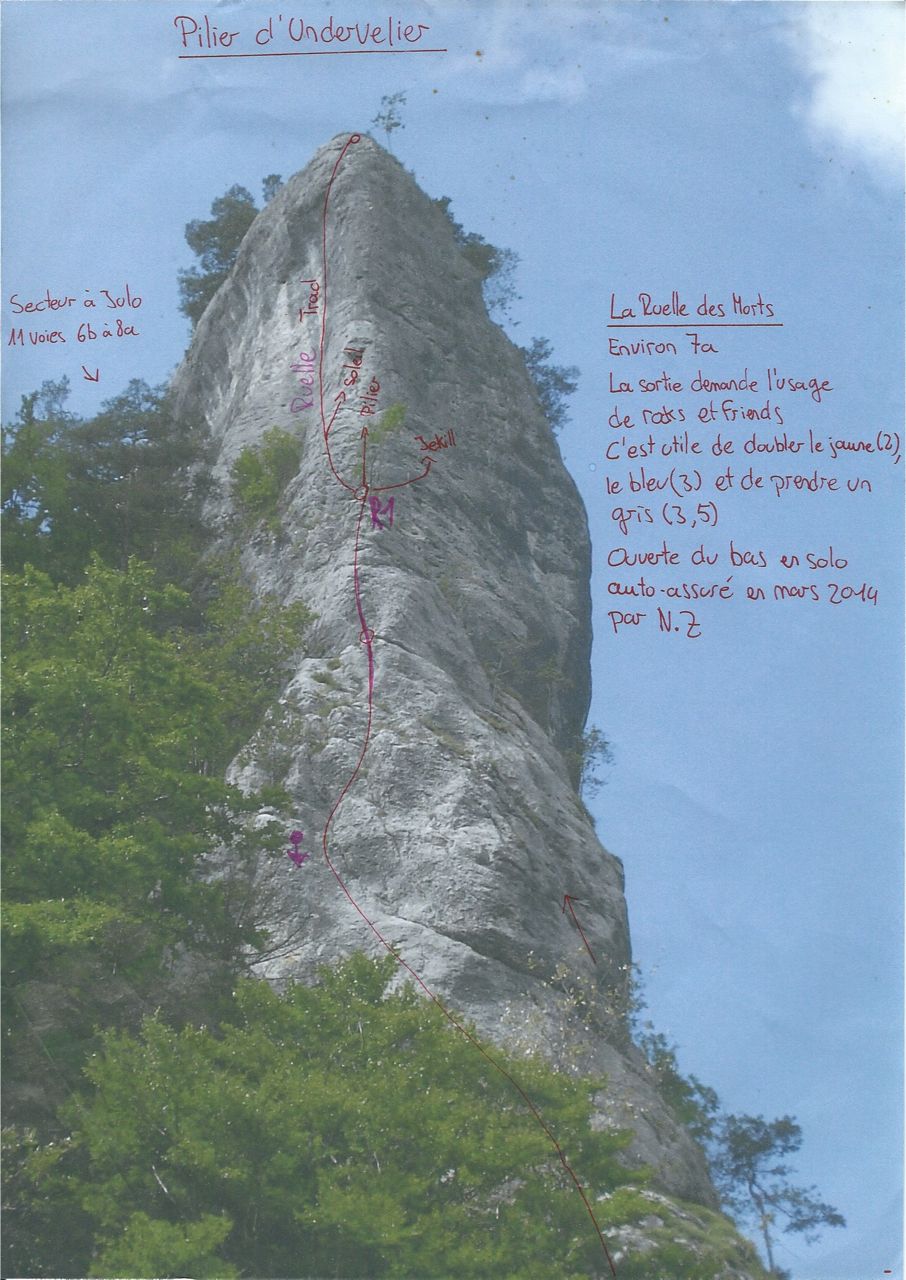 Pilier d'Undervelier
Secteur à Jolo
11 voies 6b à 8a
La Ruelle des Morts
Environ 7a
La sortie demande l'usage
de rocks et friends
C'est utile de doubler le jaune (2),
le bleu (3) et de prendre un
gris (3,5)
Ouverte du bas en solo
auto-assuré en mars 2014
par N.Z
Trad
Ruelle
Soleil
Pilier
Jekill
R1